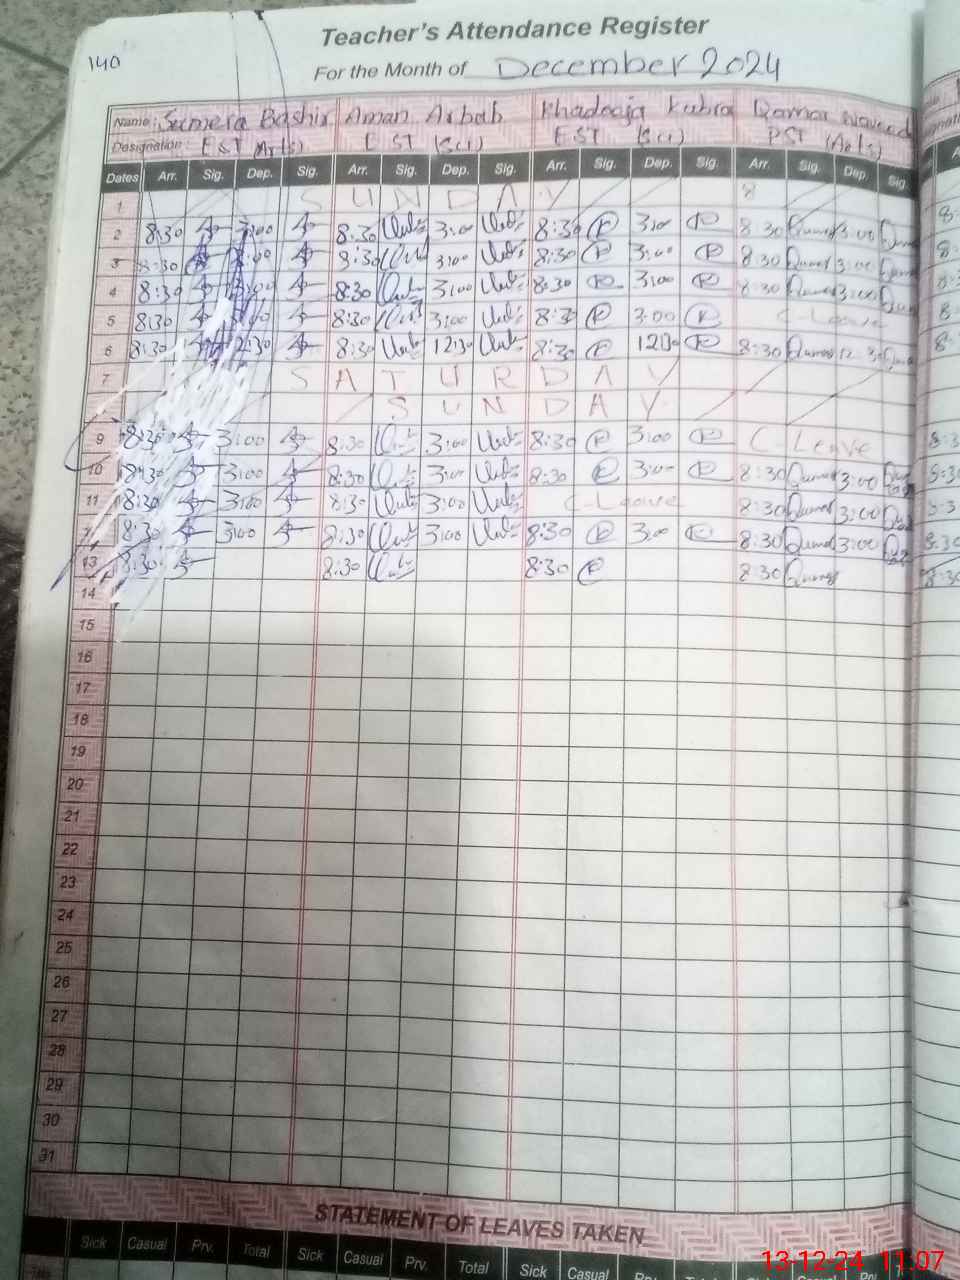 140
Teacher's Attendance Register
For the Month of December 2024
Name: Sumera Bashir Aman Arbab Khadeeja Kubra Qamar Naveed
Designation: EST (Arts) EST (Sci) EST (Sci) PST (Arts)
Dates Arr. Sig. Dep. Sig. Arr. Sig. Dep. Sig. Arr. Sig. Dep. Sig. Arr. Sig. Dep. Sig.
1 S U N D A Y
2 8:30 3:00 8:30 3:00 8:30 3:00 8:30 3:00
3 8:30 3:00 8:30 3:00 8:30 3:00 8:30 3:00
4 8:30 3:00 8:30 3:00 8:30 3:00 8:30 3:00
5 8:30 8:30 3:00 8:30 3:00 C-Leave
6 8:30 12:30 8:30 12:30 8:30 12:30 8:30 12:30
7 S A T U R D A Y
S U N D A Y
9 8:30 3:00 8:30 3:00 8:30 3:00 C-Leave
10 8:30 3:00 8:30 3:00 8:30 3:00 8:30 3:00
11 8:30 3:00 8:30 3:00 C-Leave 8:30 3:00
8:30 3:00 8:30 3:00 8:30 3:00 8:30 3:00
13 8:30 8:30 8:30 8:30
14
15
16
17
18
19
20
21
22
23
24
25
26
27
28
29
30
31
STATEMENT OF LEAVES TAKEN
Sick Casual Prv. Total Sick Casual Prv. Total Sick Casual Prv.
13-12-24 11:07